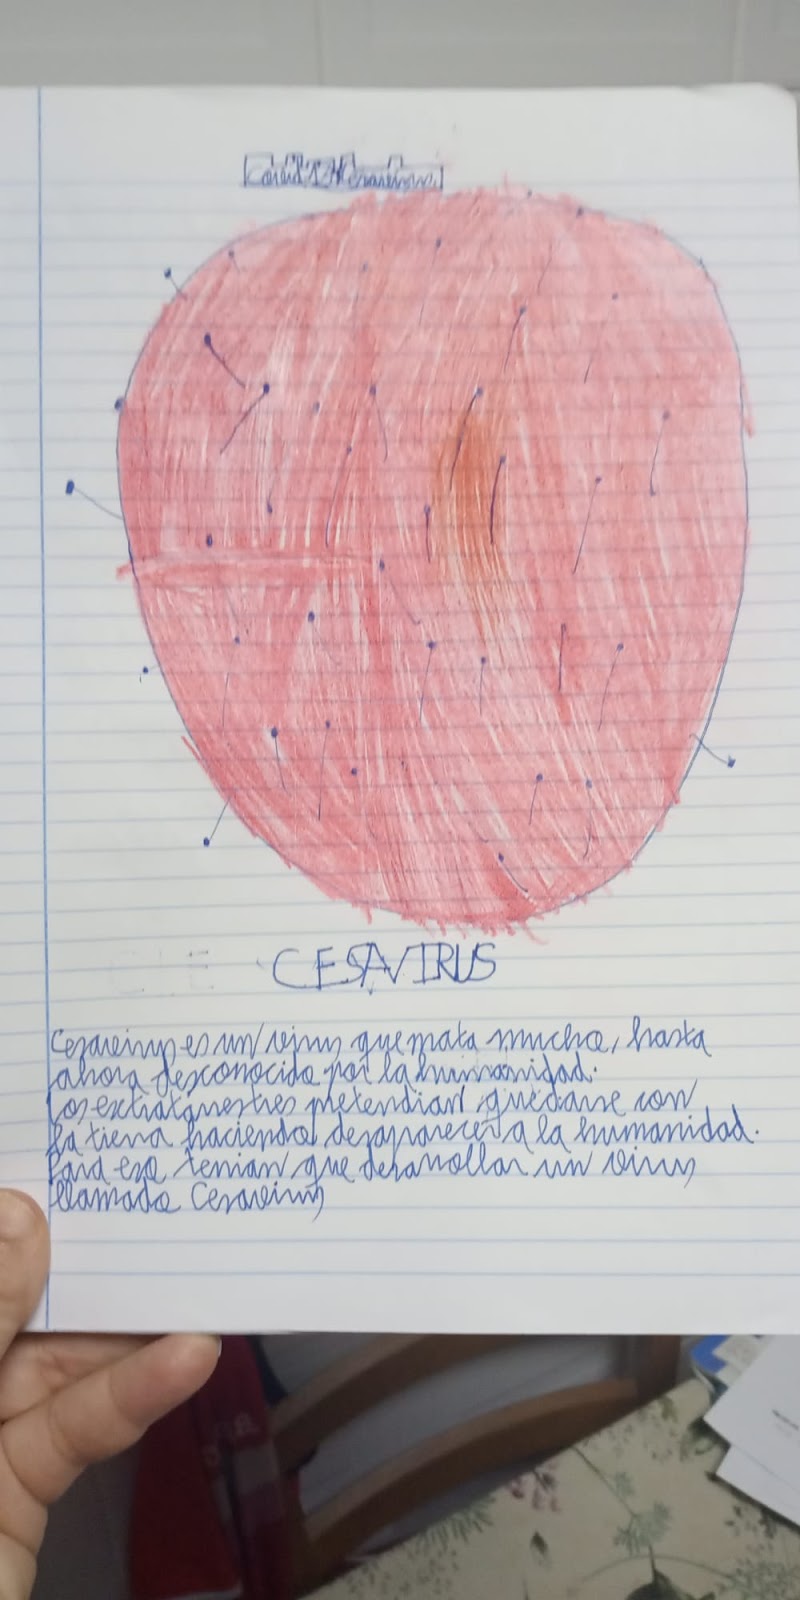 CESAVIRUS
Cesavirus es un virus que mata mucho, hasta
ahora desconocido por la humanidad.
Los extraterrestres pretendian quedarse con
la tierra haciendo desaparecer a la humanidad.
Para eso tenian que desarrollar un virus
llamado Cesavirus